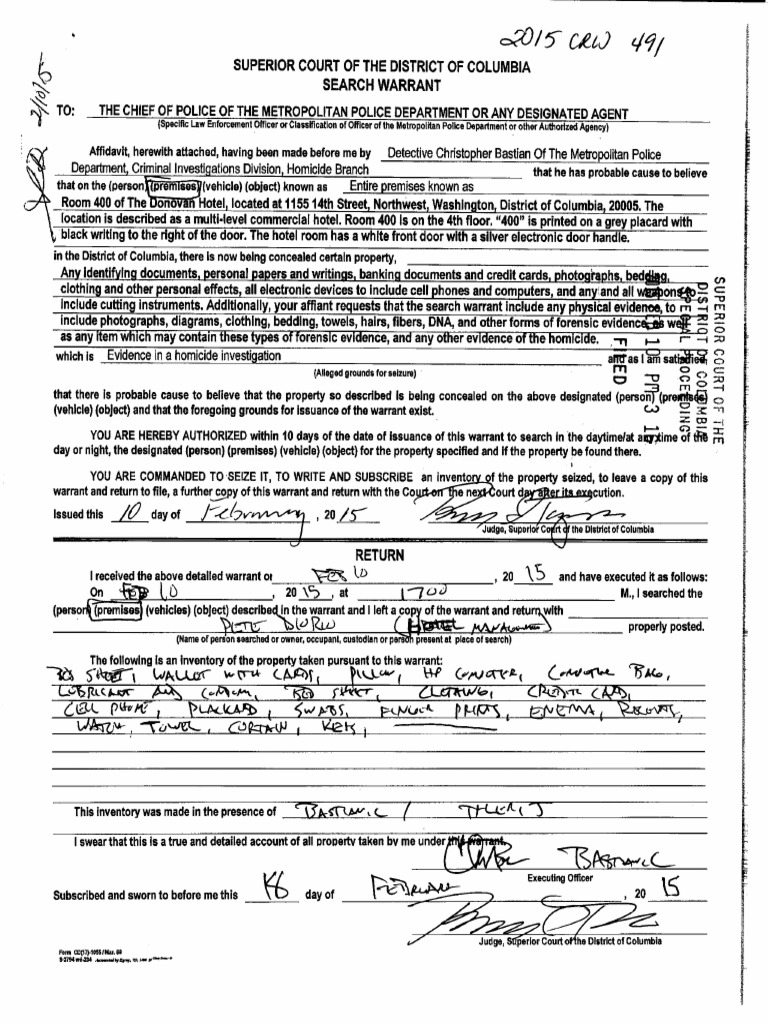 2015 CRW 491
SUPERIOR COURT OF THE DISTRICT OF COLUMBIA
SEARCH WARRANT
2/10/15
TO: THE CHIEF OF POLICE OF THE METROPOLITAN POLICE DEPARTMENT OR ANY DESIGNATED AGENT
(Specific Law Enforcement Officer or Classification of Officer of the Metropolitan Police Department or other Authorized Agency)
Affidavit, herewith attached, having been made before me by Detective Christopher Bastian Of The Metropolitan Police
Department, Criminal Investigations Division, Homicide Branch that he has probable cause to believe
that on the (person) (premises) (vehicle) (object) known as Entire premises known as
Room 400 of The Donovan Hotel, located at 1155 14th Street, Northwest, Washington, District of Columbia, 20005. The
location is described as a multi-level commercial hotel. Room 400 is on the 4th floor. "400" is printed on a grey placard with
black writing to the right of the door. The hotel room has a white front door with a silver electronic door handle.
in the District of Columbia, there is now being concealed certain property,
Any identifying documents, personal papers and writings, banking documents and credit cards, photographs, bedding,
clothing and other personal effects, all electronic devices to include cell phones and computers, and any and all weapons to
include cutting instruments. Additionally, your affiant requests that the search warrant include any physical evidence, to
include photographs, diagrams, clothing, bedding, towels, hairs, fibers, DNA, and other forms of forensic evidence, as well
as any item which may contain these types of forensic evidence, and any other evidence of the homicide.
which is Evidence in a homicide investigation and as I am satisfied,
(Alleged grounds for seizure)
SUPERIOR COURT OF THE
DISTRICT OF COLUMBIA
SPECIAL PROCEEDING
10 PM 3 1
FILED
that there is probable cause to believe that the property so described is being concealed on the above designated (person) (premises)
(vehicle) (object) and that the foregoing grounds for issuance of the warrant exist.
YOU ARE HEREBY AUTHORIZED within 10 days of the date of issuance of this warrant to search in the daytime/at anytime of the
day or night, the designated (person) (premises) (vehicle) (object) for the property specified and if the property be found there.
YOU ARE COMMANDED TO SEIZE IT, TO WRITE AND SUBSCRIBE an inventory of the property seized, to leave a copy of this
warrant and return to file, a further copy of this warrant and return with the Court on the next Court day after its execution.
Issued this 10 day of February , 2015
Judge, Superior Court of the District of Columbia
RETURN
I received the above detailed warrant on Feb 10 , 20 15 and have executed it as follows:
On Feb 10 , 2015 , at 1700 M., I searched the
(person) (premises) (vehicles) (object) described in the warrant and I left a copy of the warrant and return with
PETE DIORIO (HOTEL MANAGEMENT) properly posted.
(Name of person searched or owner, occupant, custodian or person present at place of search)
The following is an inventory of the property taken pursuant to this warrant:
BED SHEET, WALLET WITH CARDS, PILLOW, HP COMPUTER, COMPUTER BAG,
LUBRICANT AND CONDOM, BED SHEET, CLOTHING, CREDIT CARD,
CELL PHONE, PLACKARD, SWABS, FINGER PRINTS, ENEMA,
WATCH, TOWEL, CURTAIN, KEYS,
This inventory was made in the presence of BASTIAN, C / TYLER, J
I swear that this is a true and detailed account of all property taken by me under this warrant.
BASTIAN C
Executing Officer
Subscribed and sworn to before me this 18 day of February , 20 15
Judge, Superior Court of the District of Columbia
Form CD(17)-1055/Mar. 89